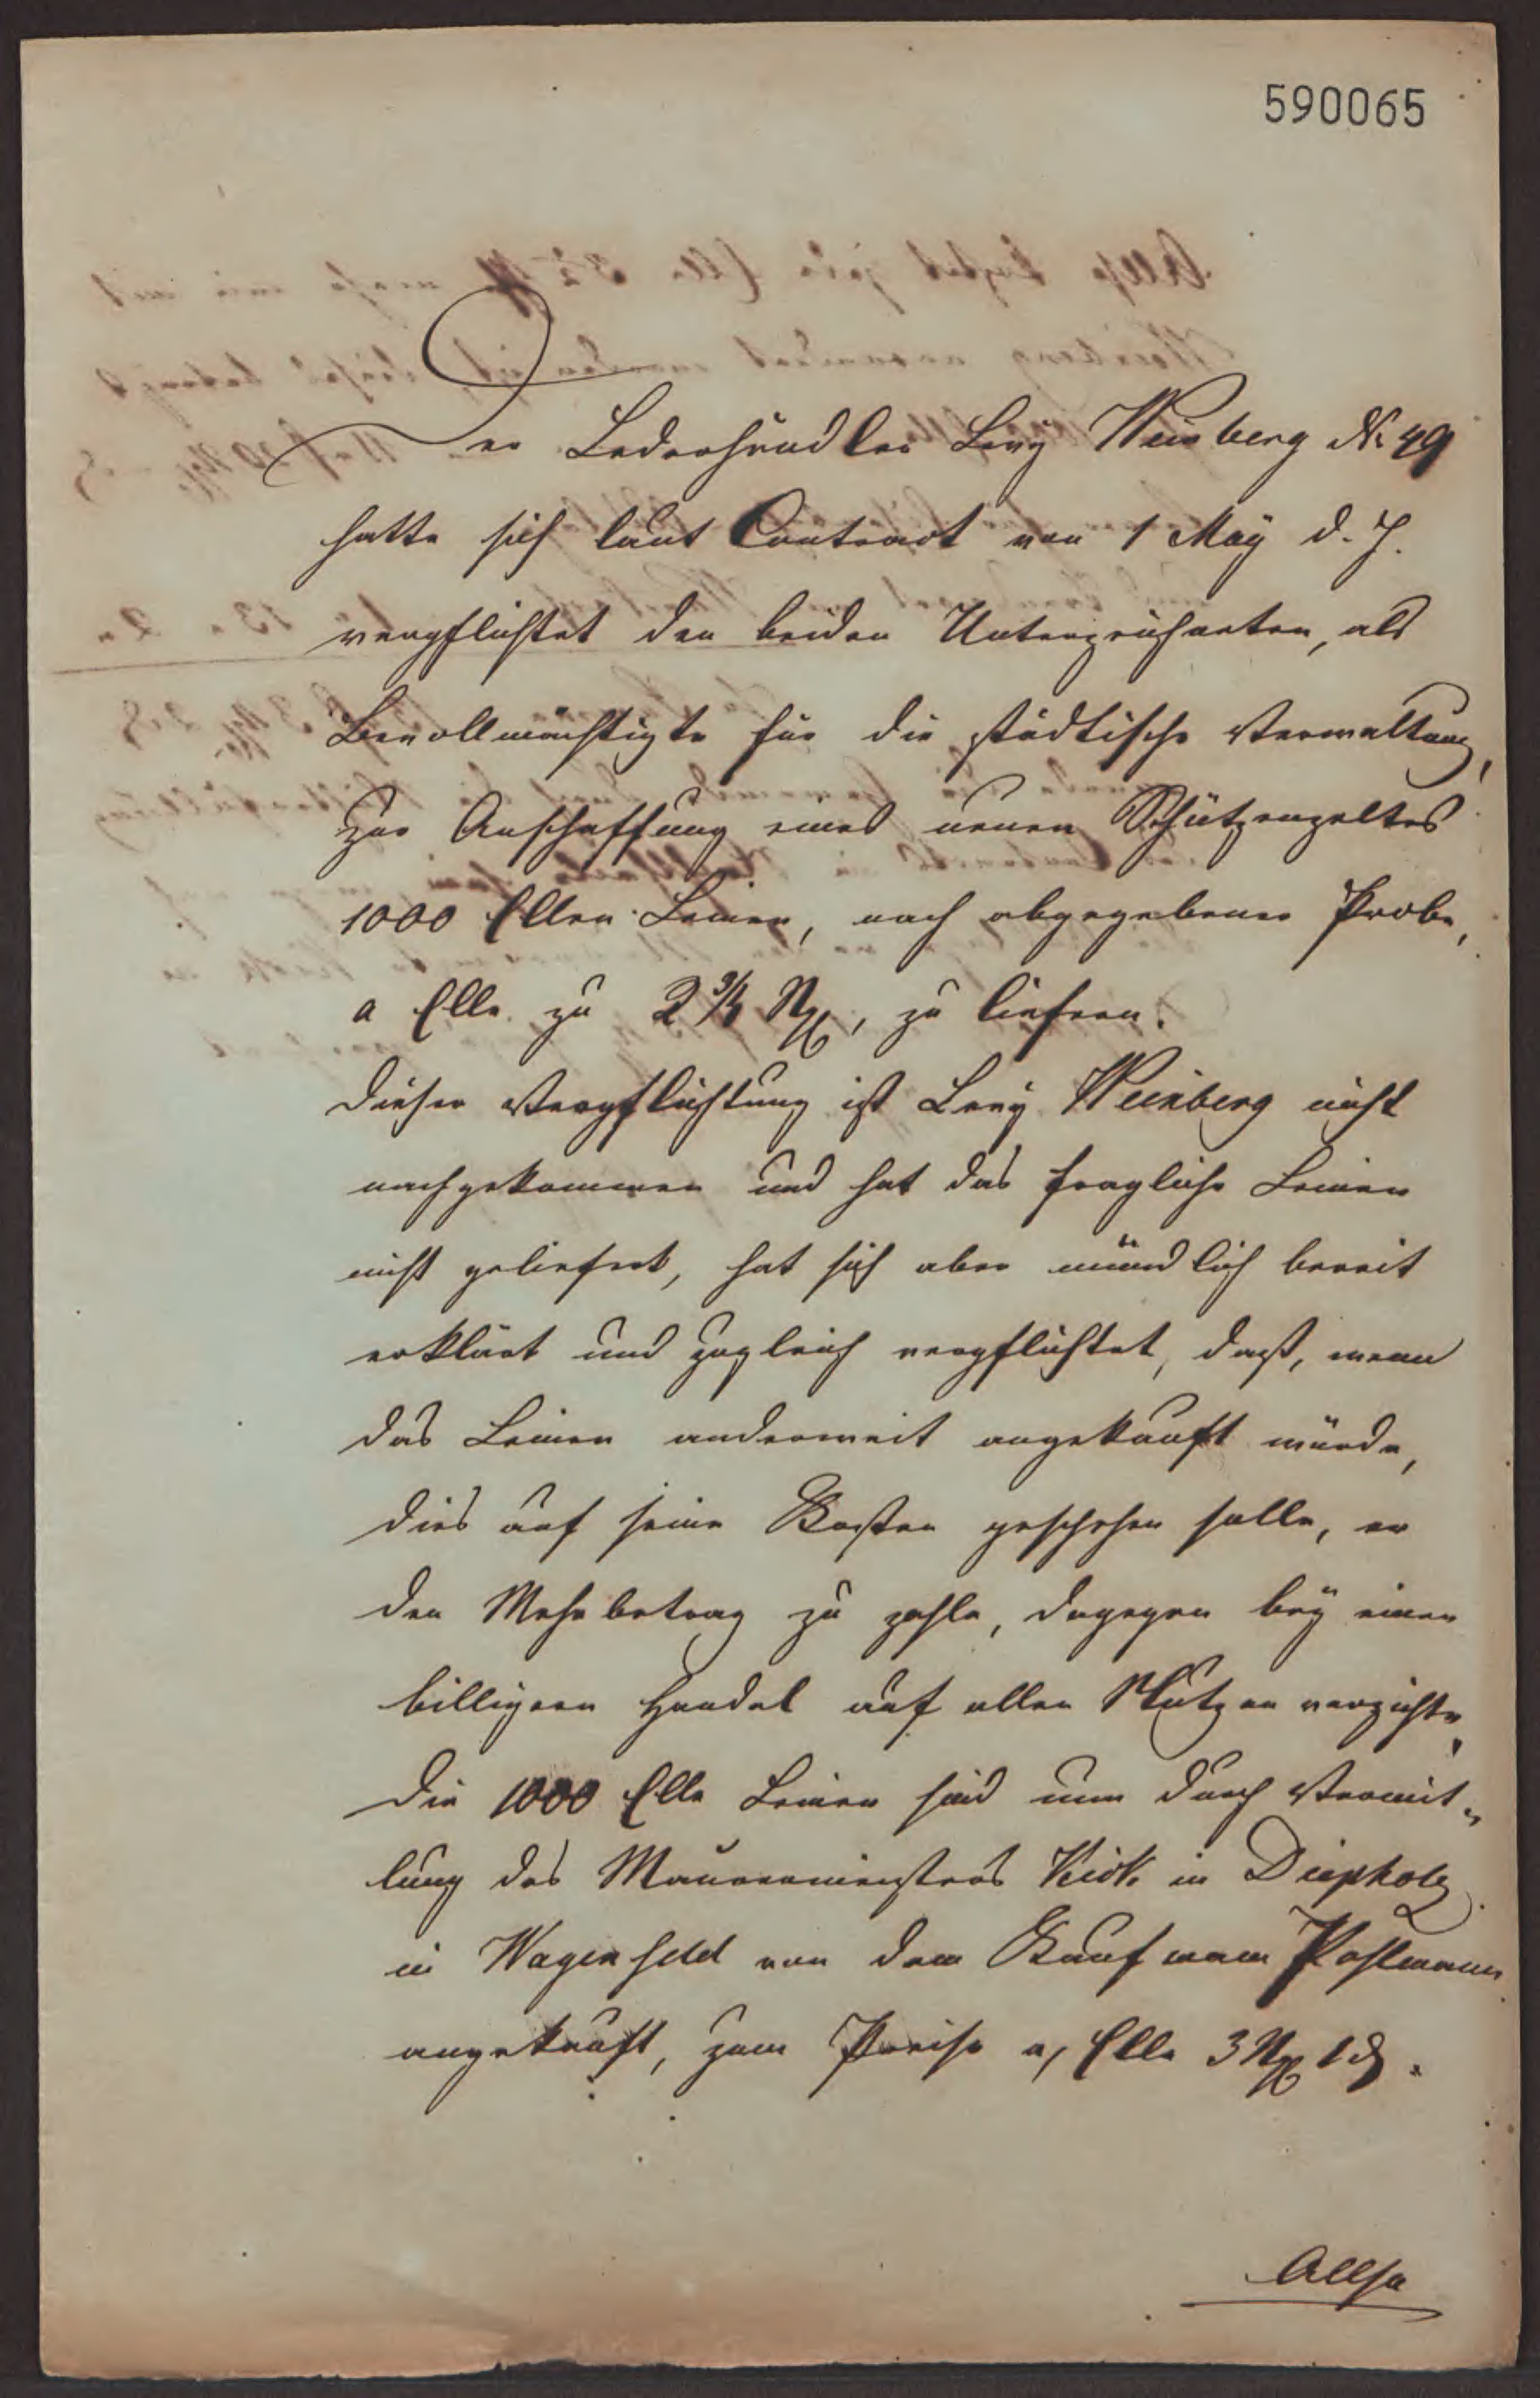 590065
Der Lederhändler Levy Weinberg No 49
hatte sich laut Contract von 1 May d. J.
verpflichtet den beiden Unterzeichneten, als
Bevollmächtigte für die städtische Verwaltung,
zur Anschaffung eines neuen Schützenzeltes
1000 Ellen Leinen, nach abgegebener Probe,
a Elle zu 2 3/4 Ngr, zu liefern.
Dieser Verpflichtung ist Levy Weinberg nicht
nachgekommen und hat das fragliche Leinen
nicht geliefert, hat sich aber mündlich bereit
erklärt und zugleich verpflichtet, daß, wenn
das Leinen anderweit angekauft würde,
dies auf seine Kosten geschehen solle, er
den Mehrbetrag zu zahle, dagegen bey einen
billigern Handel auf allen Nutzen verzichte.
Die 1000 Elle Leinen sind nun durch Vermit-
lung des Mauermeisters in Diepholz
in Wagenfeld von dem Kaufmann Pohlmann
angekauft, zum Preise a, Elle 3 Ngr 1 d.
Allso